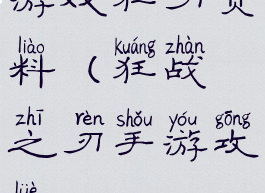 liào kuáng zhàn
料(狂战
zhī rèn shǒu yóu gōng
之刃手游攻
lüè